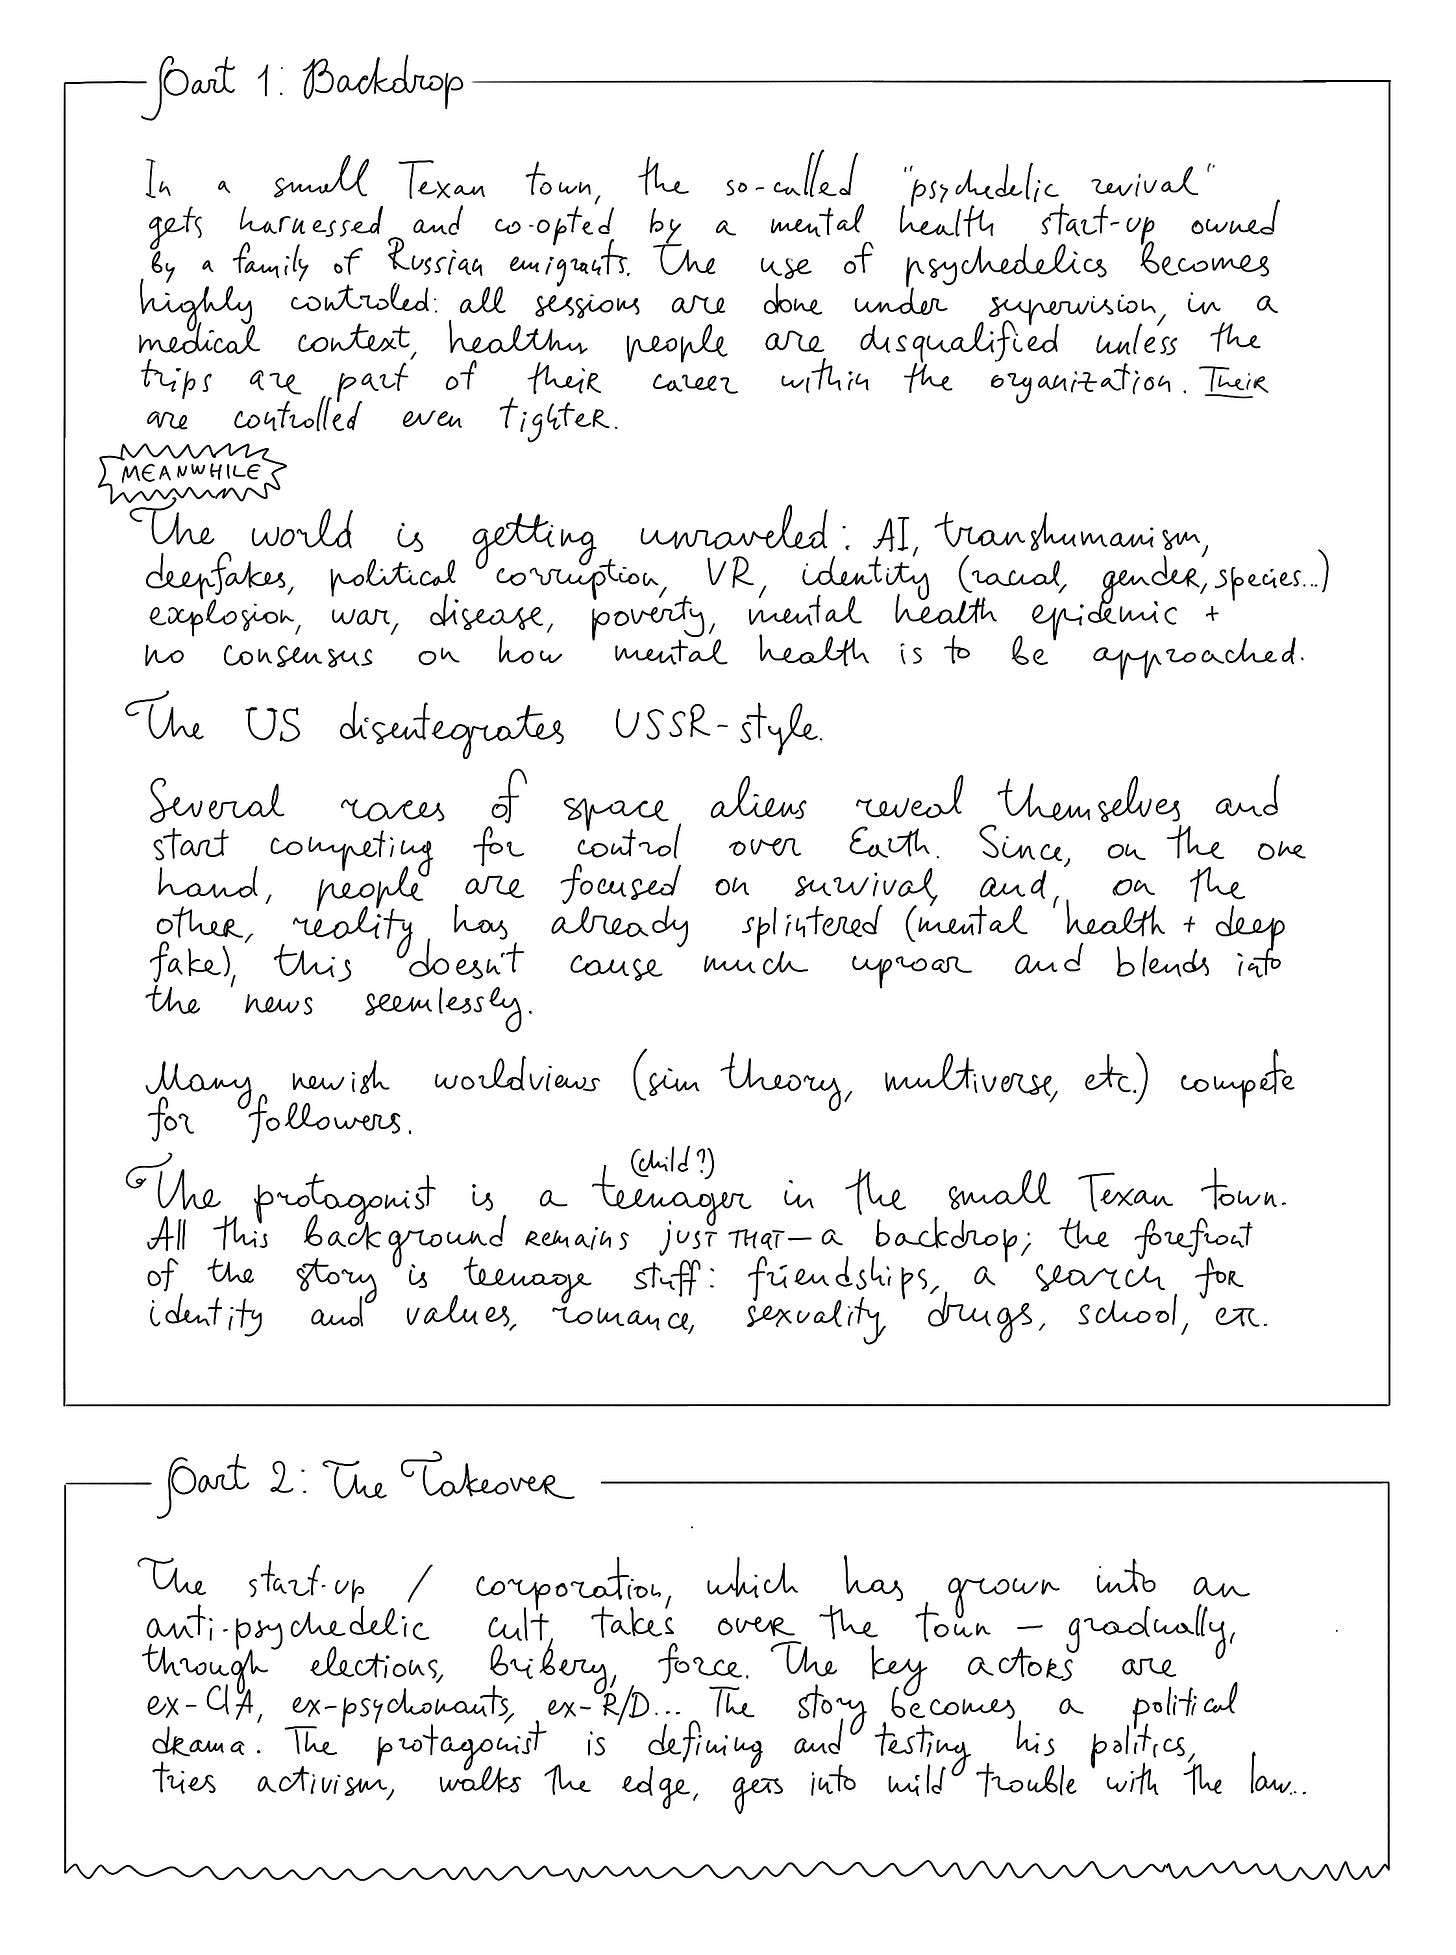 Part 1: Backdrop
In a small Texan town, the so-called "psychedelic revival"
gets harnessed and co-opted by a mental health start-up owned
by a family of Russian emigrants. The use of psychedelics becomes
highly controled: all sessions are done under supervision, in a
medical context, healthy people are disqualified unless the
trips are part of their career within the organization. Their
are controlled even tighter.
MEANWHILE
The world is getting unraveled: AI, transhumanism,
deepfakes, political corruption, VR, identity (racial, gender, species...)
explosion, war, disease, poverty, mental health epidemic +
no consensus on how mental health is to be approached.
The US disentegrates USSR-style.
Several races of space aliens reveal themselves and
start competing for control over Earth. Since, on the one
hand, people are focused on survival, and, on the
other, reality has already splintered (mental health + deep
fake), this doesn't cause much uproar and blends into
the news seemlessly.
Many newish worldviews (sim theory, multiverse, etc.) compete
for followers.
(child?)
The protagonist is a teenager in the small Texan town.
All this background remains just that — a backdrop; the forefront
of the story is teenage stuff: friendships, a search for
identity and values, romance, sexuality, drugs, school, etc.
Part 2: The Takeover
The start-up / corporation, which has grown into an
anti-psychedelic cult, takes over the town — gradually,
through elections, bribery, force. The key actors are
ex-CIA, ex-psychonauts, ex-R/D... The story becomes a political
drama. The protagonist is defining and testing his politics,
tries activism, walks the edge, gets into mild trouble with the law...